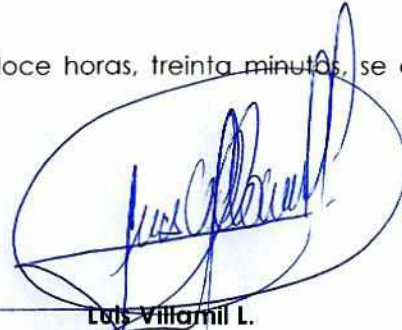 doce horas, treinta minutos, se
Luis Villamil L.